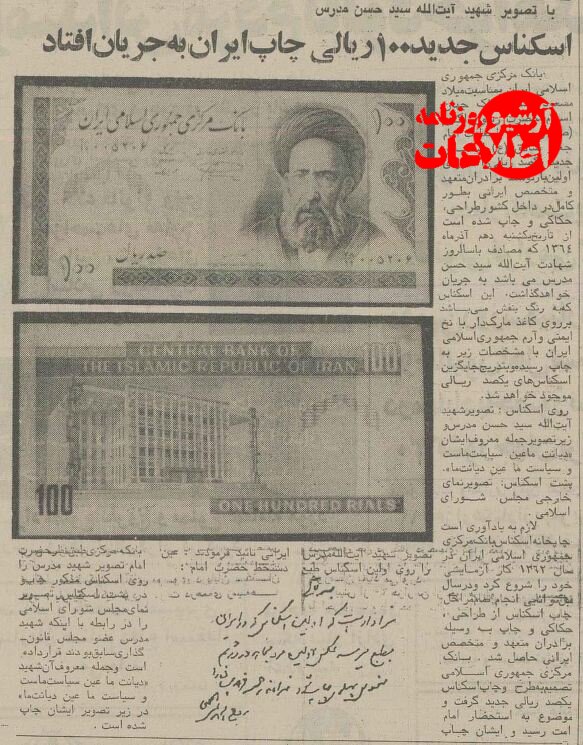 با تصویر شهید آیت‌الله سید حسن مدرس
اسکناس جدید ۱۰۰ ریالی چاپ ایران به جریان افتاد
بانک مرکزی جمهوری
اسلامی ایران بمناسبت میلاد
آرشیو روزنامه
اطلاعات
اولین بار توسط برادران متعهد
و متخصص ایرانی بطور
کامل در داخل کشور طراحی،
حکاکی و چاپ شده است
از تاریخ یکشنبه دهم آذرماه
۱۳۶٤ که مصادف باسالروز
شهادت آیت‌الله سید حسن
مدرس می باشد به جریان
خواهد گذاشت. این اسکناس
که به رنگ بنفش می‌باشد
برروی کاغذ مارک‌دار با نخ
ایمنی و آرم جمهوری اسلامی
ایران با مشخصات زیر به
چاپ رسیده و بتدریج جایگزین
اسکناس‌های یکصد ریالی
موجود خواهد شد.
روی اسکناس : تصویر شهید
آیت‌الله سید حسن مدرس و
زیر تصویر جمله معروف ایشان
«دیانت ما عین سیاست ماست
و سیاست ما عین دیانت ما».
پشت اسکناس: تصویر نمای
خارجی مجلس شورای
اسلامی.
لازم به یادآوری است
چاپخانه اسکناس بانک مرکزی
جمهوری اسلامی ایران در
سال ۱۳۶۲ کار آزمایشی
خود را شروع کرد و در سال
چاپ اسکناس از طراحی،
حکاکی و چاپ به وسیله
برادران متعهد و متخصص
ایرانی حاصل شد. بانک
مرکزی جمهوری اسلامی
تصمیم به طرح و چاپ اسکناس
یکصد ریالی جدید گرفت و
موضوع به استحضار امام
امت رسید و ایشان چاپ
تصویر شهید آیت‌الله مدرس
را روی اولین اسکناس طبع
ایرانی تائید فرمودند : عین
دستخط حضرت امام :
بانک مرکزی طبق نظر حضرت
امام تصویر شهید مدرس را
روی اسکناس مذکور چاپ و
در پشت اسکناس تصویر
نمای مجلس شورای اسلامی
را در رابطه با اینکه شهید
مدرس عضو مجلس قانون‌ـ
گذاری سابق بودند قرار داده
است و جمله معروف آن شهید
«دیانت ما عین سیاست ماست
و سیاست ما عین دیانت ما»
در زیر تصویر ایشان چاپ
شده است .
بانک مرکزی جمهوری اسلامی ایران
۱۰۰
۰۰۵۲۰۶
صد ریال
۱۰۰
۰۰۵۲۰۶
CENTRAL BANK OF
THE ISLAMIC REPUBLIC OF IRAN
100
100
ONE HUNDRED RIALS
سزاوار است که اولین اسکناس که در ایران